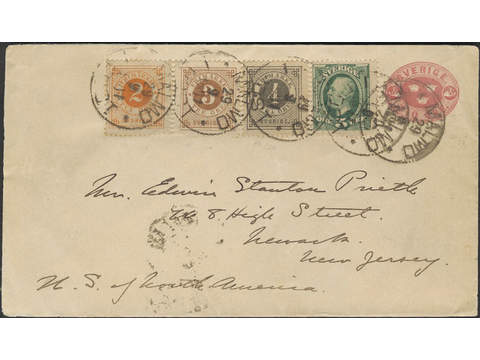 2 3 4 SVERIGE SVERIGE
MALMÖ MALMÖ MALMÖ
Mr. Edwin Stanton
8 High Street.
Newark.
New Jersey.
U. S. of North America.